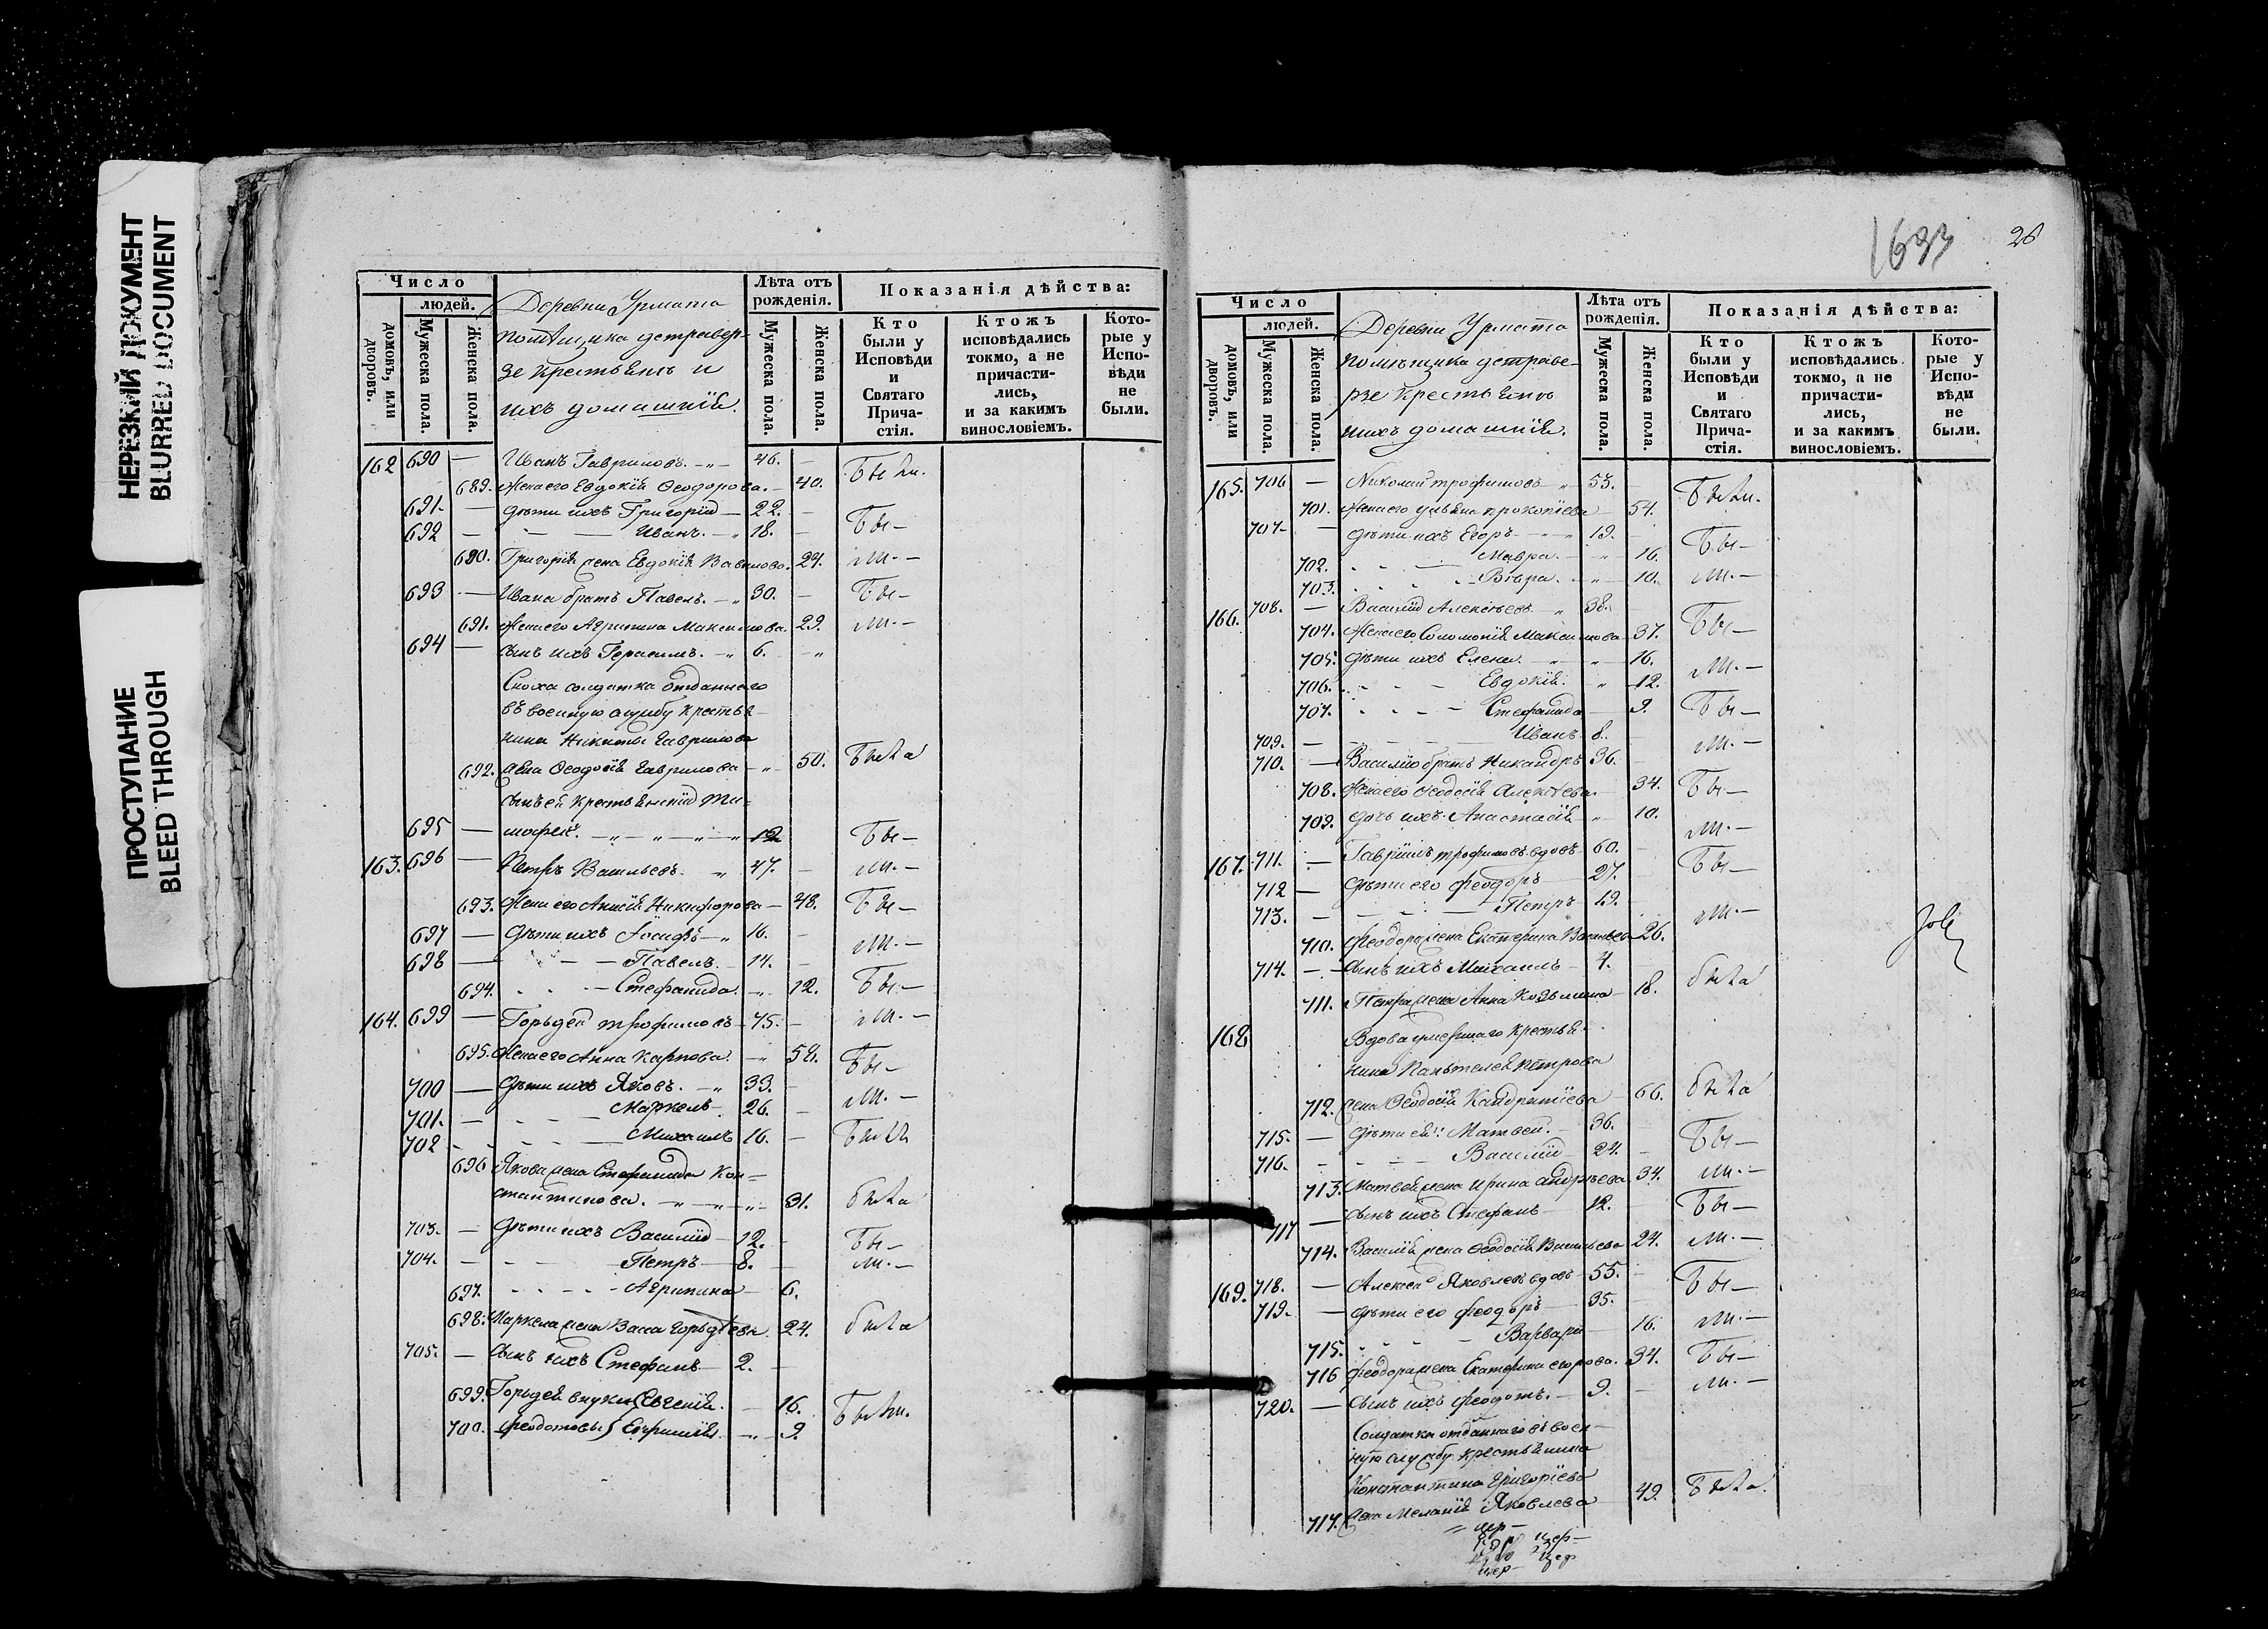 НЕРЕЗКИЙ ДОКУМЕНТ
BLURRED DOCUMENT
ПРОСТУПАНИЕ
BLEED THROUGH
Число
людей.
домовъ, или дворовъ.
Мужеска пола.
Женска пола.
Деревни Урмата
помѣщика детравер-
зе крестьянъ и
ихъ домашнія.
Лѣта отъ рожденія.
Мужеска пола.
Женска пола.
Показанія дѣйства:
Кто были у Исповѣди и Святаго Прича-стія.
Ктожъ исповѣдались токмо, а не причасти-лись, и за какимъ винословіемъ.
Кото-рые у Испо-вѣди не были.
162 690 — Иванъ Гавриловъ. 46. — Были.
689. Жена его Евдокія Ѳеодорова. — 40.
691. — дѣти ихъ Григорій — 22. —
692 — Иванъ. 18. — Бы—
690. Григорія жена Евдокія Вавилова. 24. ли.—
693 — Ивана братъ Павелъ. 30. — Бы—
691. Жена его Агрипина Максимова. 29. ли.—
694 — сынъ ихъ Герасимъ. 6.
Сноха солдатка отданнаго
въ военную службу крестья-
нина Никиты Гаврилова
692. жена Ѳеодосія Гаврилова 50. Была
сынъ ей крестьянскій Ти-
695 — мофей. 12 Бы—
163. 696 — Петръ Васильевъ. 47. — ли.—
693. Жена его Анисія Никифорова — 48. Бы—
697 — Дѣти ихъ Іосифъ 16. —
698 — Павелъ. 14. — ли.—
694. — Стефанида. 12. Бы—
164. 699 — Горьдей трофимовъ 75. — ли.—
695. Жена его Анна Карпова. 58. Бы—
700 — Дѣти ихъ Яковъ. 33. —
701. — Маркелъ 26. — ли.—
702 — Михаилъ 16. — Были
696 Якова жена Стефанида Кон=
стантинова. 31. была
703. — Дѣти ихъ Василій 12. — Бы—
704. — Петръ 8. — ли.—
697. Агрипина 6.
698. Маркела жена Васса Горьдѣева 24. была
705. — Сынъ ихъ Стефанъ 2. —
699. Горьдея внуки Евгенія. 16. Были.
700. Феодотовы Ефросинія. 9.
1633
26
Число
людей.
домовъ, или дворовъ.
Мужеска пола.
Женска пола.
Деревни Урмата
помѣщика детраве-
рзе крестьянъ
ихъ домашнія.
Лѣта отъ рожденія.
Мужеска пола.
Женска пола.
Показанія дѣйства:
Кто были у Исповѣди и Святаго Прича-стія.
Ктожъ исповѣдались токмо, а не причасти-лись, и за какимъ винословіемъ.
Кото-рые у Испо-вѣди не были.
165. 706 — Николай трофимовъ 53. — Были.
701. Жена его ульяна прокопіева 54.
707. — дѣти ихъ Егоръ 19. Бы—
702. Мавра. 16.
703. Вѣра. 10. ли.—
166. 708. — Василій Алексѣевъ 38. Бы—
704. Жена его Соломонія Максимова 37.
705. Дѣти ихъ Елена. 16. ли.—
706. Евдокія. 12.
707. Стефанида 9. Бы—
709. — Иванъ 8. ли.—
710. — Василію братъ Никандръ 36.
708. Жена его Ѳеодосія Алексѣева. 34. Бы—
709. дочь ихъ Анастасія 10. ли.—
167. 711. — Гавріилъ трофимовъ вдовъ 60. — Бы—
712 — Дѣти его Феодоръ 27.
713. — Петръ 19. ли.—
710. Феодора жена Екатерина Васильева 26.
714. — сынъ ихъ Михаилъ 4.
711. Петра жена Анна Козьмина 18. была
168 Вдова умершаго крестья-
нина Пантелея петрова
712. жена Ѳеодосія Кандратіева 66. была
715. — дѣти ея: Матвей. 36. Бы—
716. — Василій 24.
713. Матвея жена Ирина андрѣева 34. ли.—
717 — сынъ ихъ Стефанъ 12. Бы—
714. Василія жена Ѳеодосія Васильева 24. ли.—
169. 718. — Алексей Яковлевъ вдовъ 55. Бы—
719. — дѣти его Феодоръ 35.
715. Варвара 16. ли.—
716 Феодора жена Екатерина егорова. 34. Бы—
720. — Сынъ ихъ Феодотъ. 9. — ли.—
Солдатка отданнаго въ воен-
ную службу крестьянина
Константина Григоріева
717. жена Меланія Яковлева 49. Была.